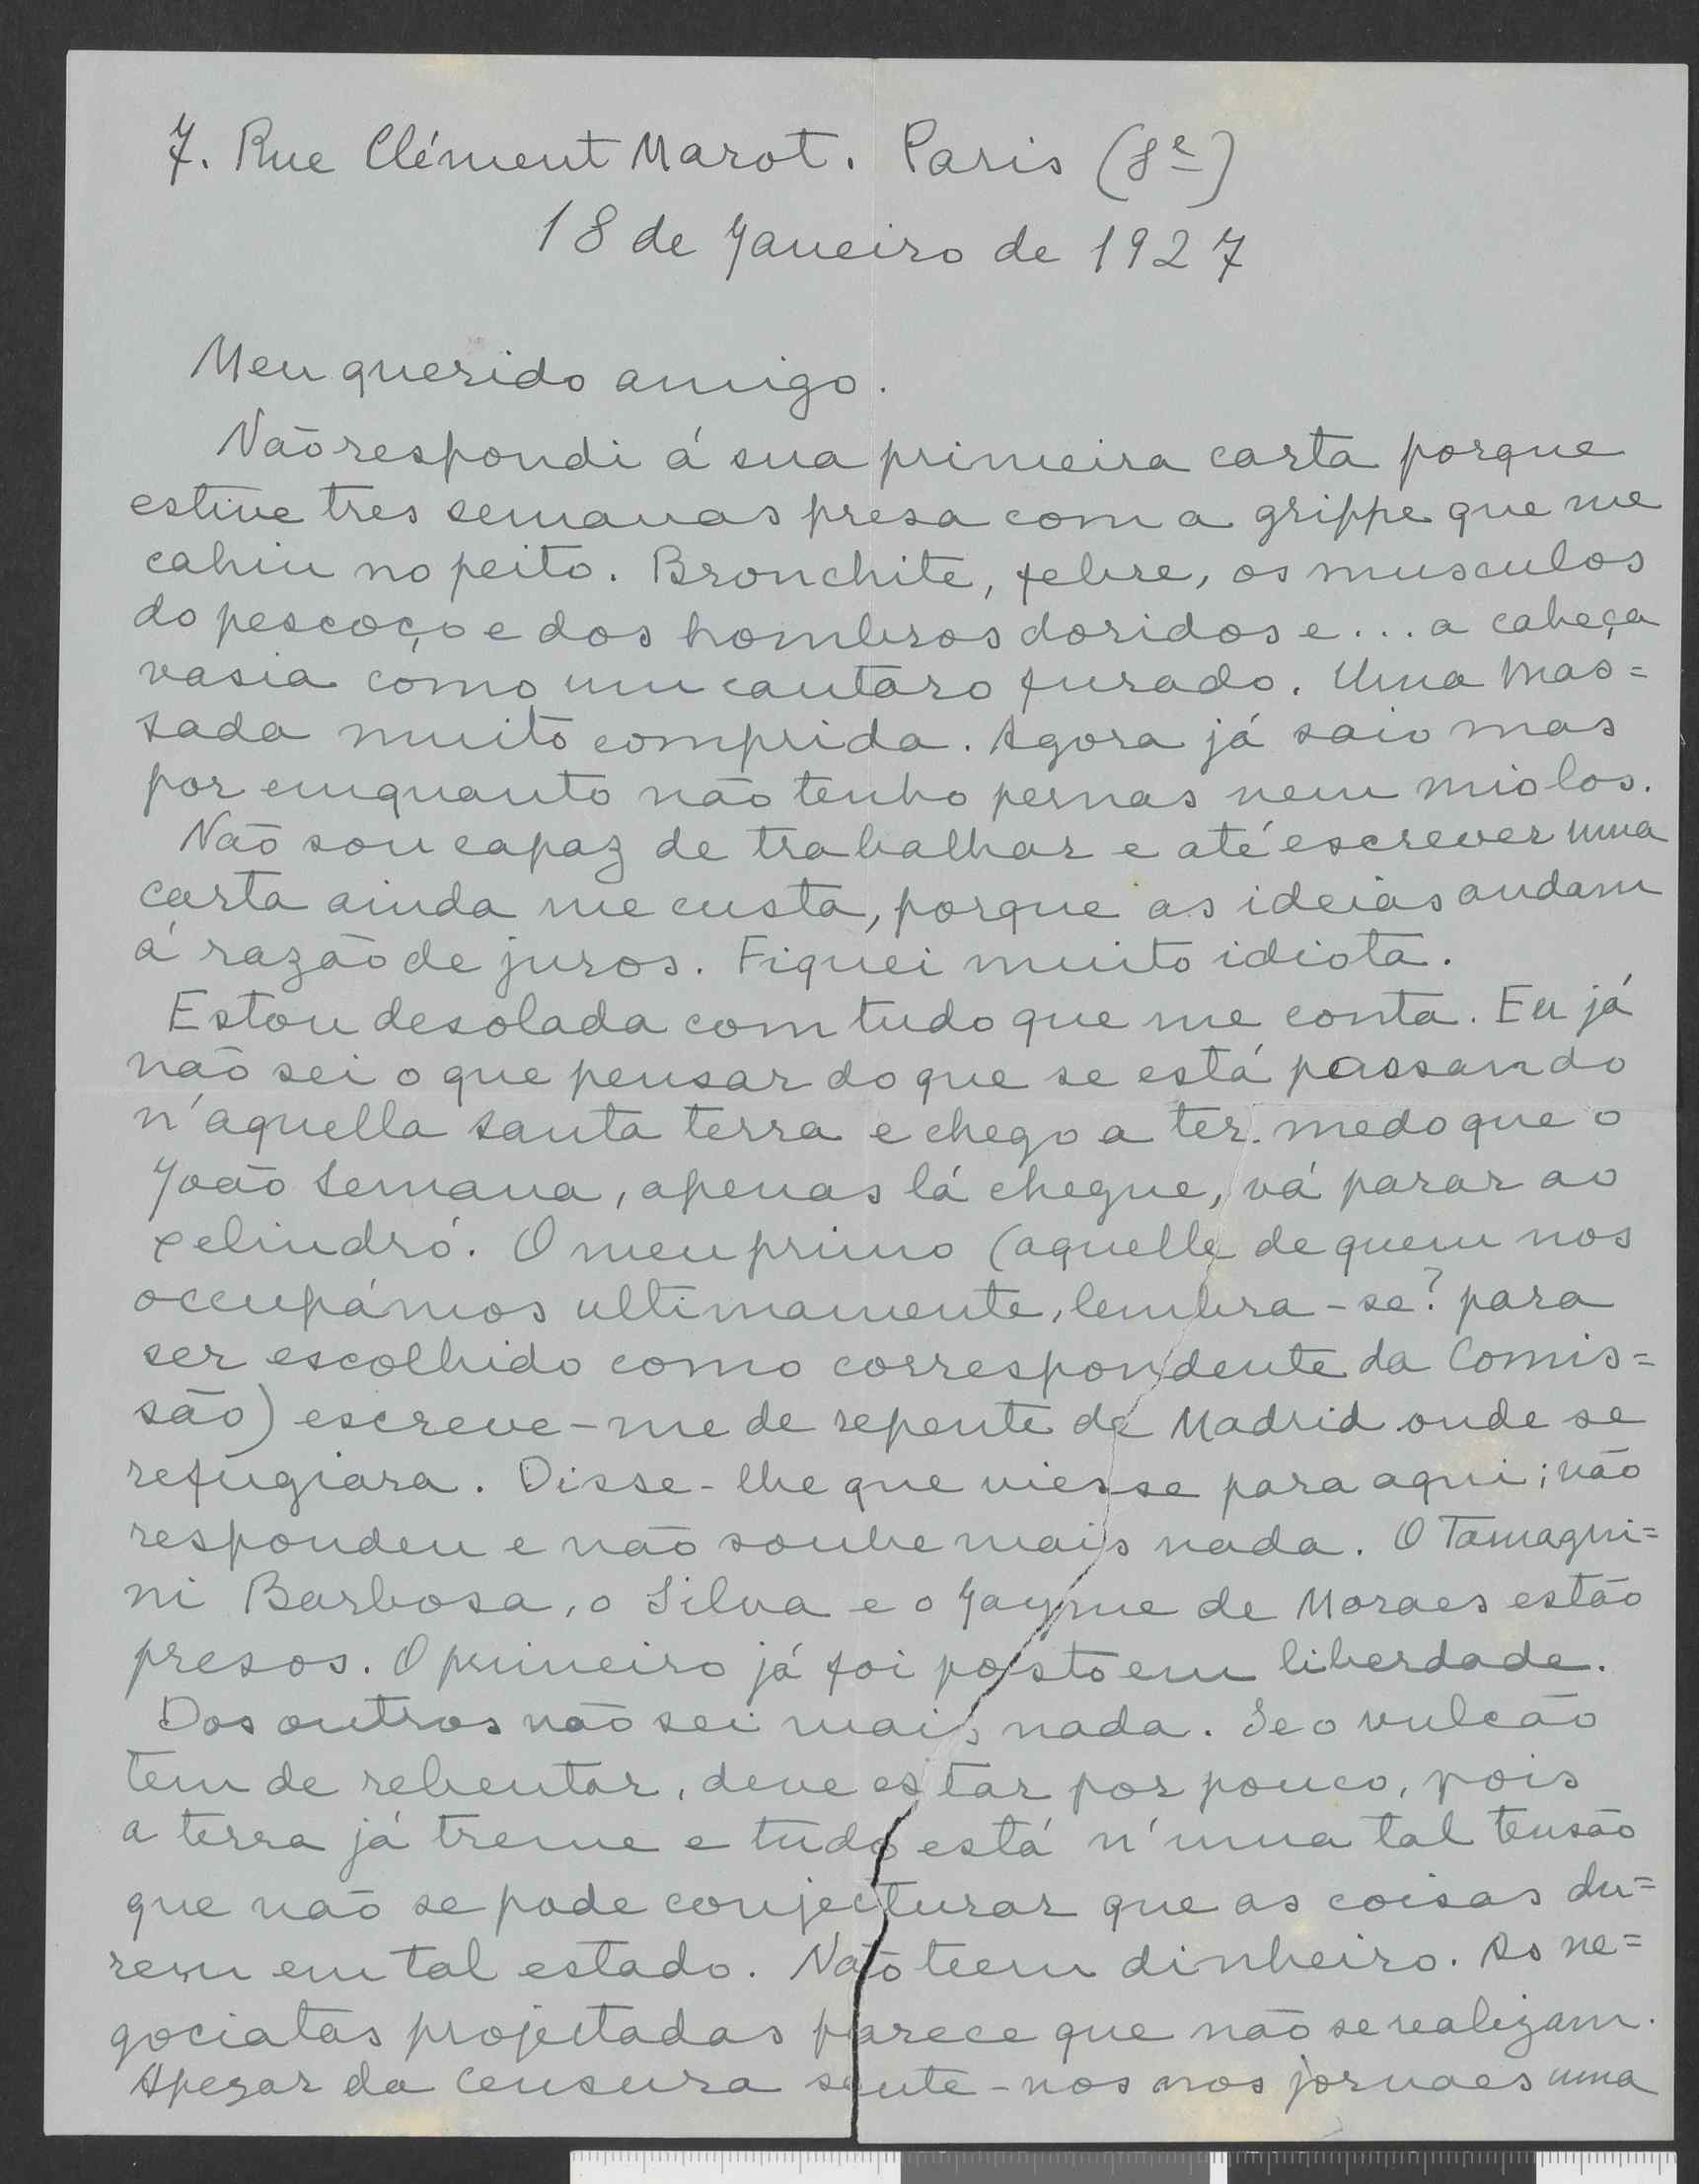 7. Rue Clément Marot. Paris (8e)
18 de Janeiro de 1927
Meu querido amigo.
Não respondi á sua primeira carta porque
estive tres semanas presa com a grippe que me
cahiu no peito. Bronchite, febre, os musculos
do pescoço e dos hombros doridos e... a cabeça
vasia como um cantaro furado. Uma mas=
sada muito comprida. Agora já saio mas
por emquanto não tenho pernas nem miolos.
Não sou capaz de trabalhar e até escrever uma
carta ainda me custa, porque as ideias andam
á razão de juros. Fiquei muito idiota.
Estou desolada com tudo que me conta. Eu já
não sei o que pensar do que se está passando
n'aquella santa terra e chego a ter medo que o
João Semana, apenas lá chegue, vá parar ao
xelindró. O meu primo (aquelle de quem nos
occupámos ultimamente, lembra-se? para
ser escolhido como correspondente da Comis=
são) escreve-me de repente de Madrid onde se
refugiara. Disse-lhe que viesse para aqui; não
respondeu e não soube mais nada. O Tamagni=
ni Barbosa, o Silva e o Jayme de Moraes estão
presos. O primeiro já foi posto em liberdade.
Dos outros não sei mais nada. Se o vulcão
tem de rebentar, deve estar por pouco, pois
a terra já treme e tudo está n'uma tal tensão
que não se pode conjecturar que as coisas du=
rem em tal estado. Não teem dinheiro. As ne=
gociatas projectadas parece que não se realizam.
Apezar da censura sente-nos nos jornaes uma